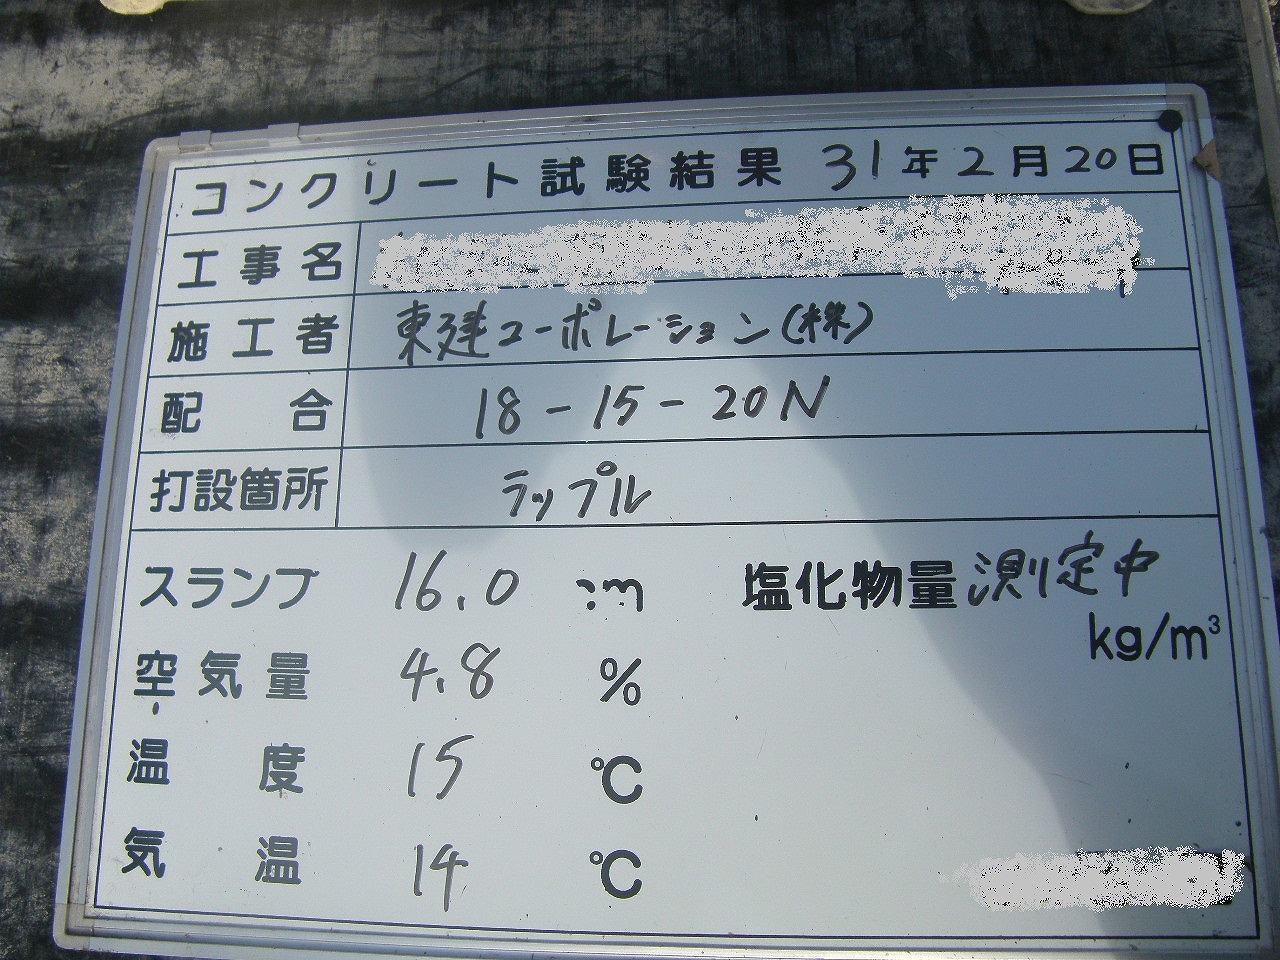 コンクリート試験結果 31年2月20日
工事名
施工者 東建コーポレーション(株)
配合 18-15-20N
打設箇所 ラップル
スランプ 16.0 cm 塩化物量 測定中
kg/m³
空気量 4.8 %
温度 15 ℃
気温 14 ℃